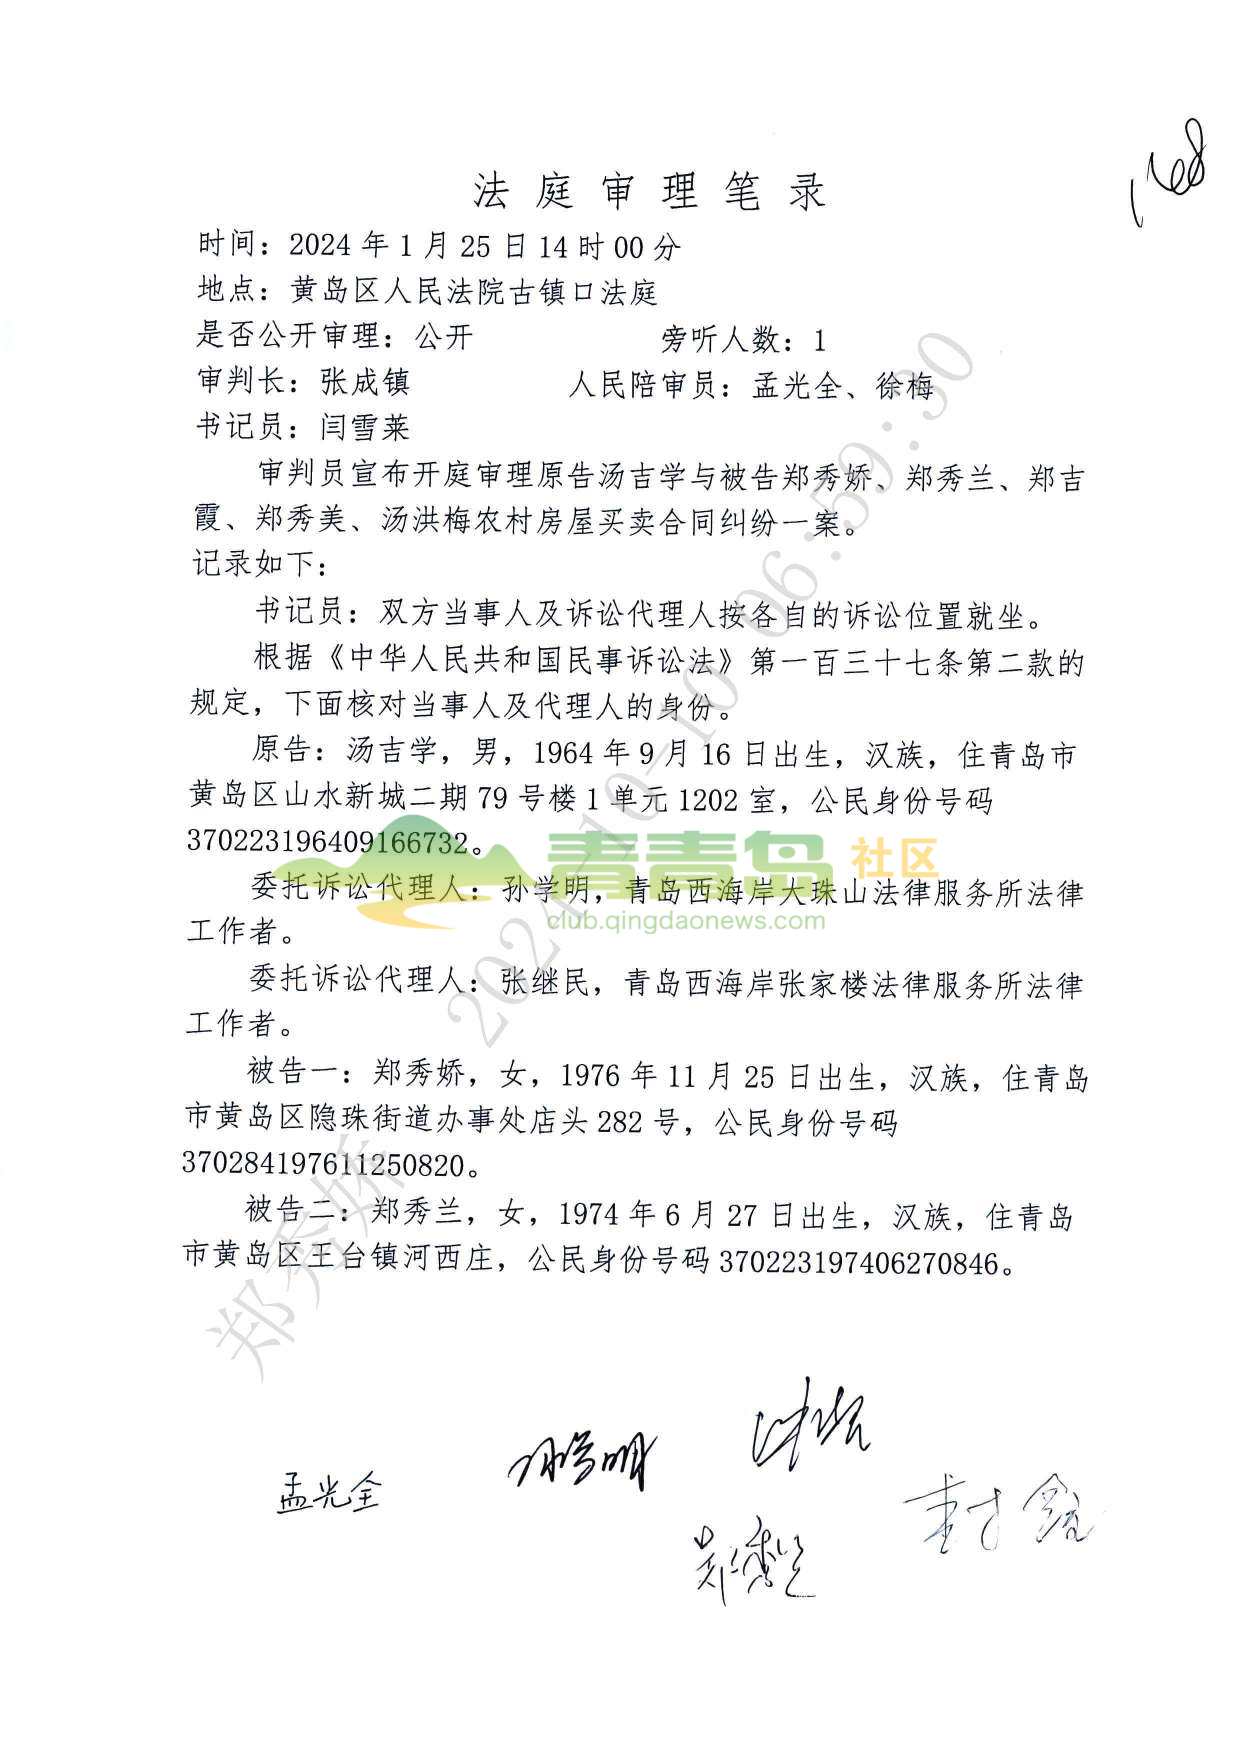 法庭审理笔录
时间：2024年1月25日14时00分
地点：黄岛区人民法院古镇口法庭
是否公开审理：公开 旁听人数：1
审判长：张成镇 人民陪审员：孟光全、徐梅
书记员：闫雪莱
审判员宣布开庭审理原告汤吉学与被告郑秀娇、郑秀兰、郑吉
霞、郑秀美、汤洪梅农村房屋买卖合同纠纷一案。
记录如下：
书记员：双方当事人及诉讼代理人按各自的诉讼位置就坐。
根据《中华人民共和国民事诉讼法》第一百三十七条第二款的
规定，下面核对当事人及代理人的身份。
原告：汤吉学，男，1964年9月16日出生，汉族，住青岛市
黄岛区山水新城二期79号楼1单元1202室，公民身份号码
370223196409166732。
委托诉讼代理人：孙学明，青岛西海岸大珠山法律服务所法律
工作者。
委托诉讼代理人：张继民，青岛西海岸张家楼法律服务所法律
工作者。
被告一：郑秀娇，女，1976年11月25日出生，汉族，住青岛
市黄岛区隐珠街道办事处店头282号，公民身份号码
370284197611250820。
被告二：郑秀兰，女，1974年6月27日出生，汉族，住青岛
市黄岛区王台镇河西庄，公民身份号码370223197406270846。
孟光全
孙学明
郑秀娇 2024-10-10 06:59:30
青青岛 社区
club.qingdaonews.com